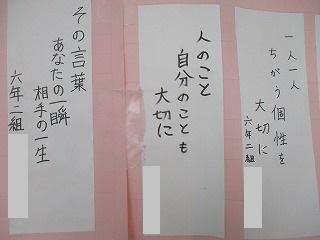 一人一人
ちがう個性を
大切に
六年二組
人のこと
自分のことも
大切に
その言葉
あなたの一瞬
相手の一生
六年二組